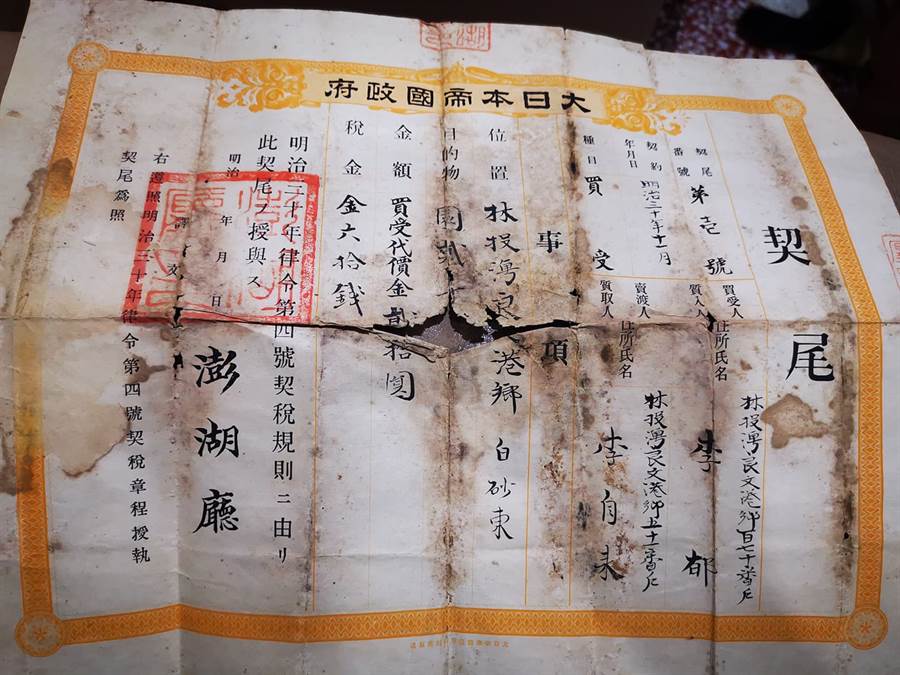 大日本帝國政府
契尾
契尾番號 第壱號
買受人
質入人
住所氏名
林投灣良文港鄉百七十番戶
李郁
契約年月日 明治三十年十一月
賣渡人
質取人
住所氏名
林投灣良文港鄉五十一番戶
李自
種目 買受
事項
位置 林投灣良文港鄉 白砂東
目的物 園貳
金額 買受代價金貳拾圓
稅金 金六拾錢
明治三十年律令第四號契稅規則ニ由リ
此契尾ヲ授與ス
明治 年 月 日
澎湖廳
譯文
右遵照明治三十年律令第四號契稅章程授執
契尾為照